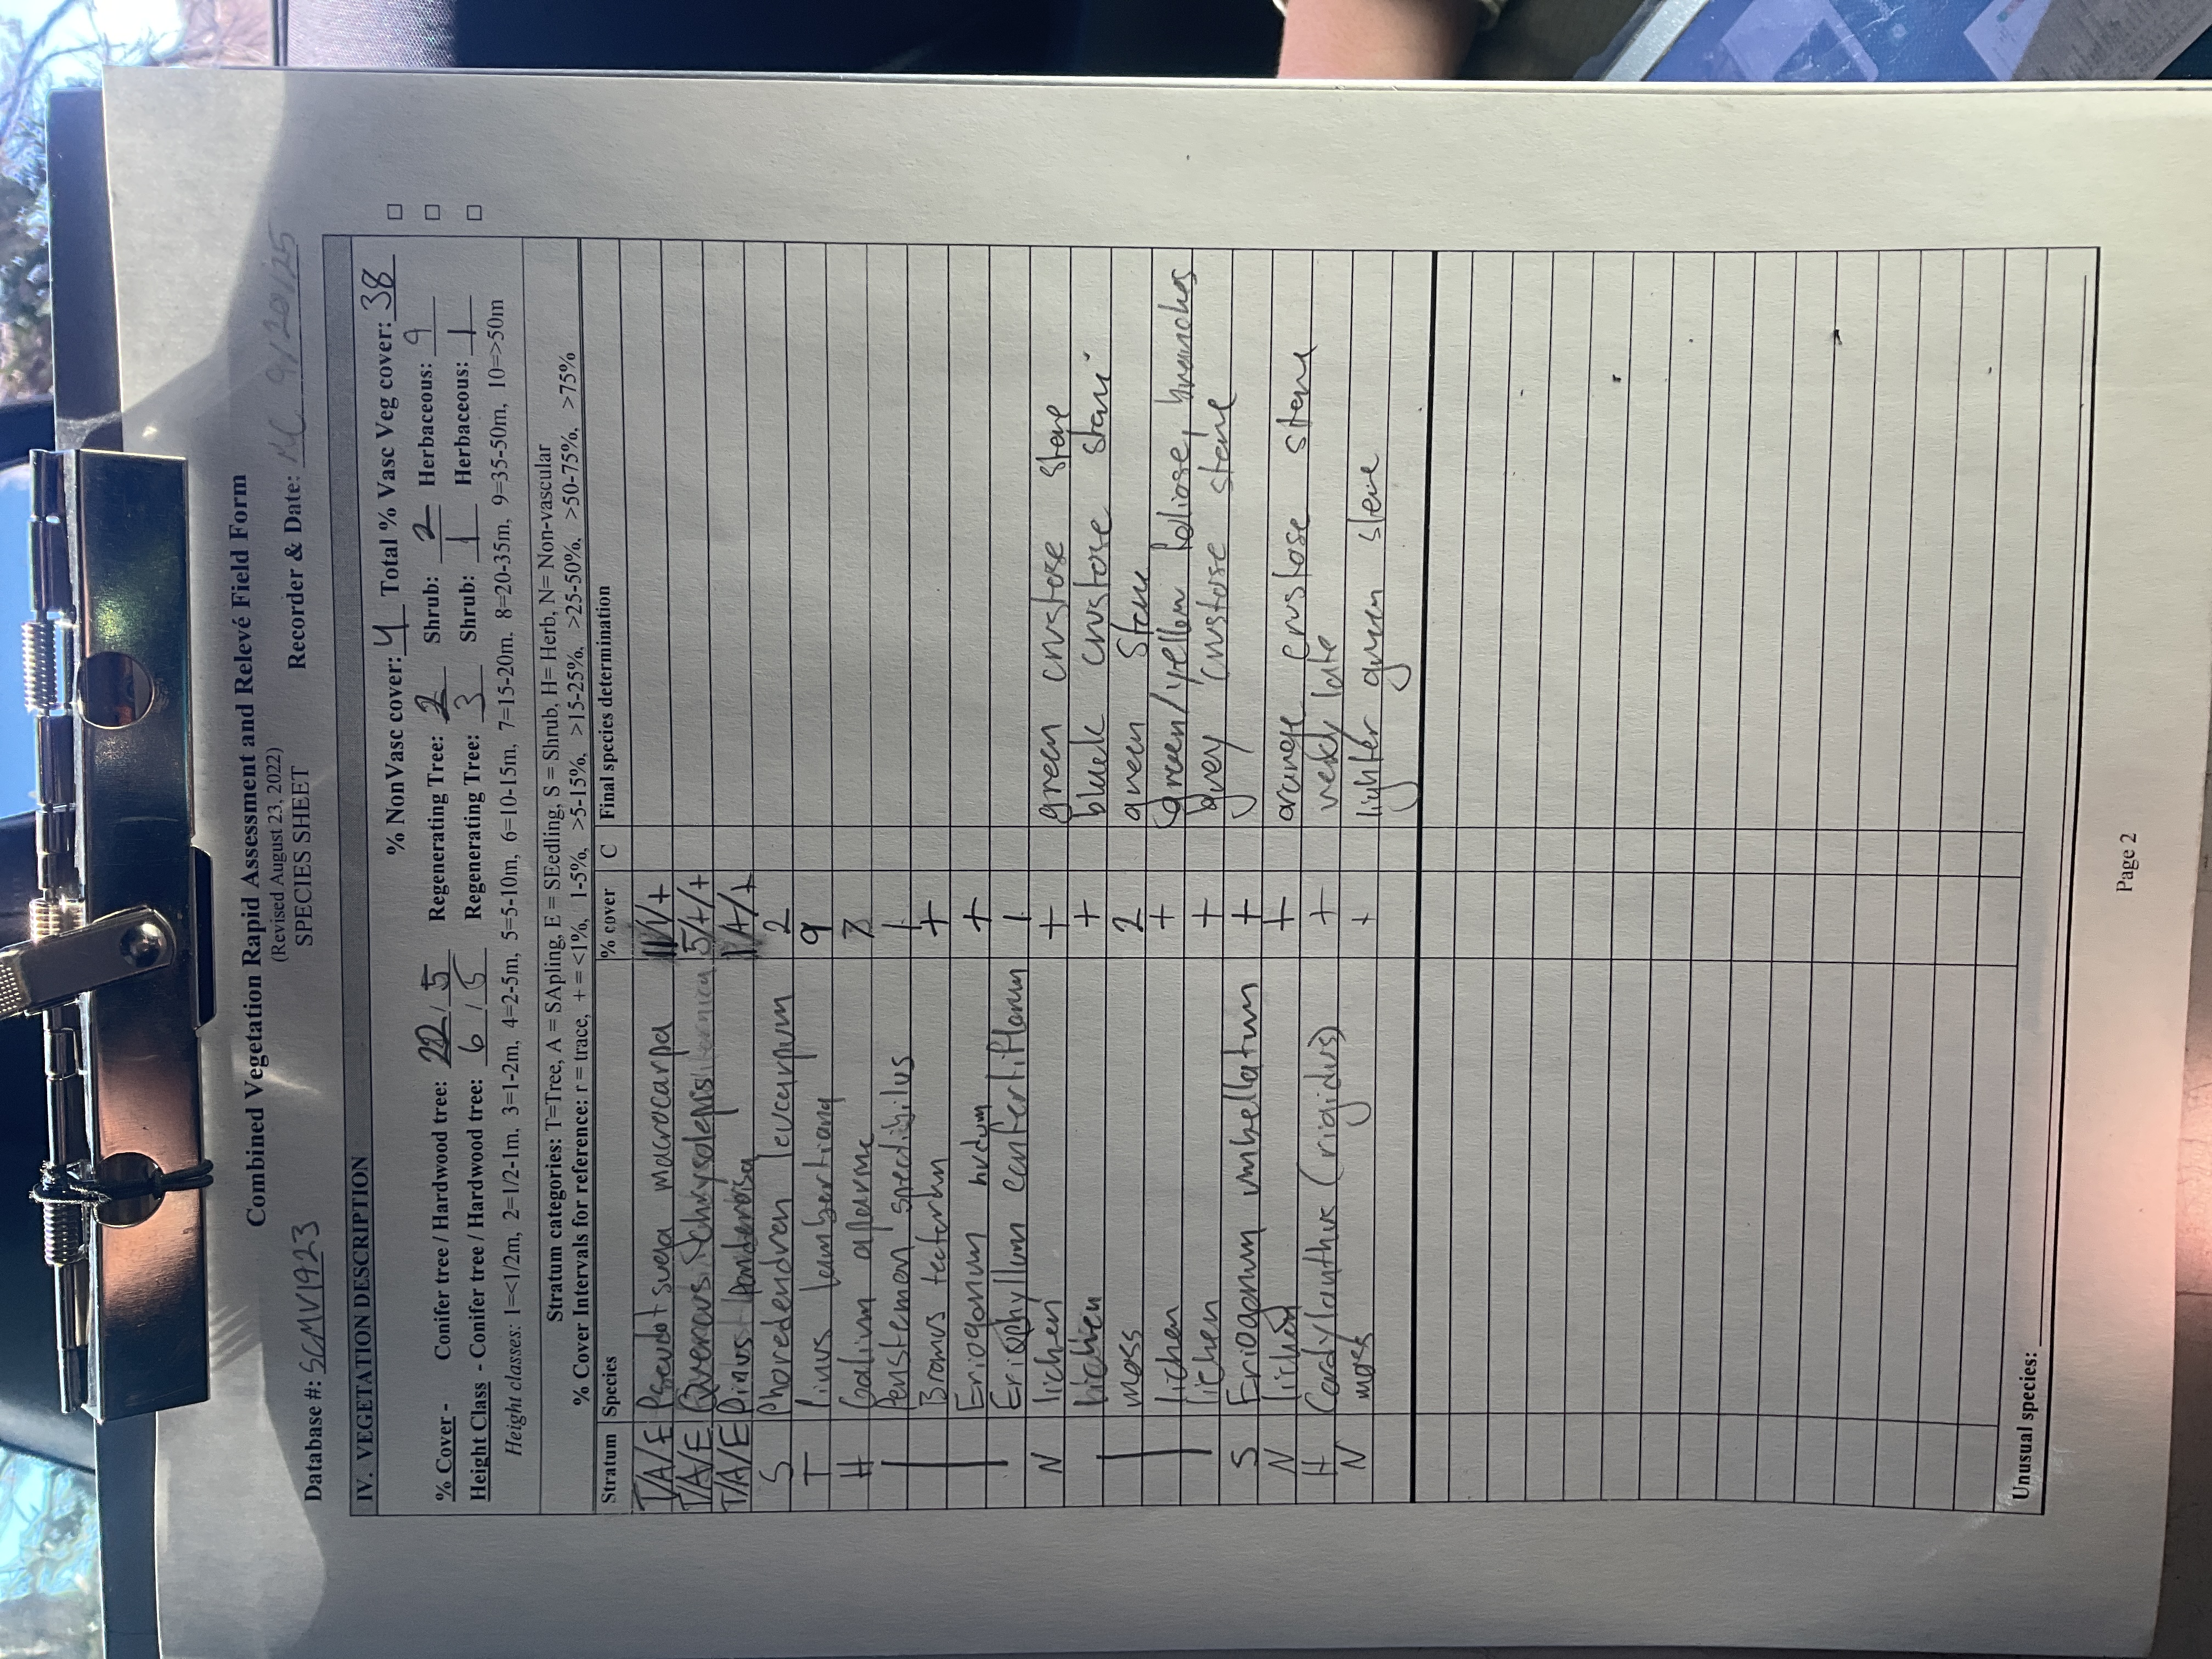 Combined Vegetation Rapid Assessment and Relevé Field Form
(Revised August 23, 2022)
SPECIES SHEET
Database #: SCMV1923 Recorder & Date: 9/20/25
IV. VEGETATION DESCRIPTION
% NonVasc cover: 4 Total % Vasc Veg cover: 38 □
% Cover - Conifer tree / Hardwood tree: 22 / 5 Regenerating Tree: 2 Shrub: 2 Herbaceous: 9 □
Height Class - Conifer tree / Hardwood tree: 6 / 5 Regenerating Tree: 3 Shrub: 1 Herbaceous: 1 □
Height classes: 1=<1/2m, 2=1/2-1m, 3=1-2m, 4=2-5m, 5=5-10m, 6=10-15m, 7=15-20m. 8=20-35m, 9=35-50m, 10=>50m
Stratum categories: T=Tree, A = SApling, E = SEedling, S = Shrub, H= Herb, N= Non-vascular
% Cover Intervals for reference: r = trace, + = <1%, 1-5%, >5-15%, >15-25%, >25-50%, >50-75%, >75%
Stratum Species % cover C Final species determination
T/A/E Pseudotsuga macrocarpa 11/1/+
T/A/E Quercus chrysolepis 5/+/+
T/A/E Pinus ponderosa 1/+/+
S Phoredendron leucarpum 2
T Pinus lambertiana 9
H Galium
Penstemon 1
Bromus tectorum +
Eriogonum nudum +
Eriophyllum confertiflorum 1
N lichen + green crustose stone
lichen + black crustose
moss 2 green stone
lichen + green/yellow foliose, branches
lichen + grey crustose stone
S Eriogonum umbellatum +
N lichen + orange crustose stone
H Cordylanthus (rigidus) +
N moss + lighter green
Unusual species:
Page 2